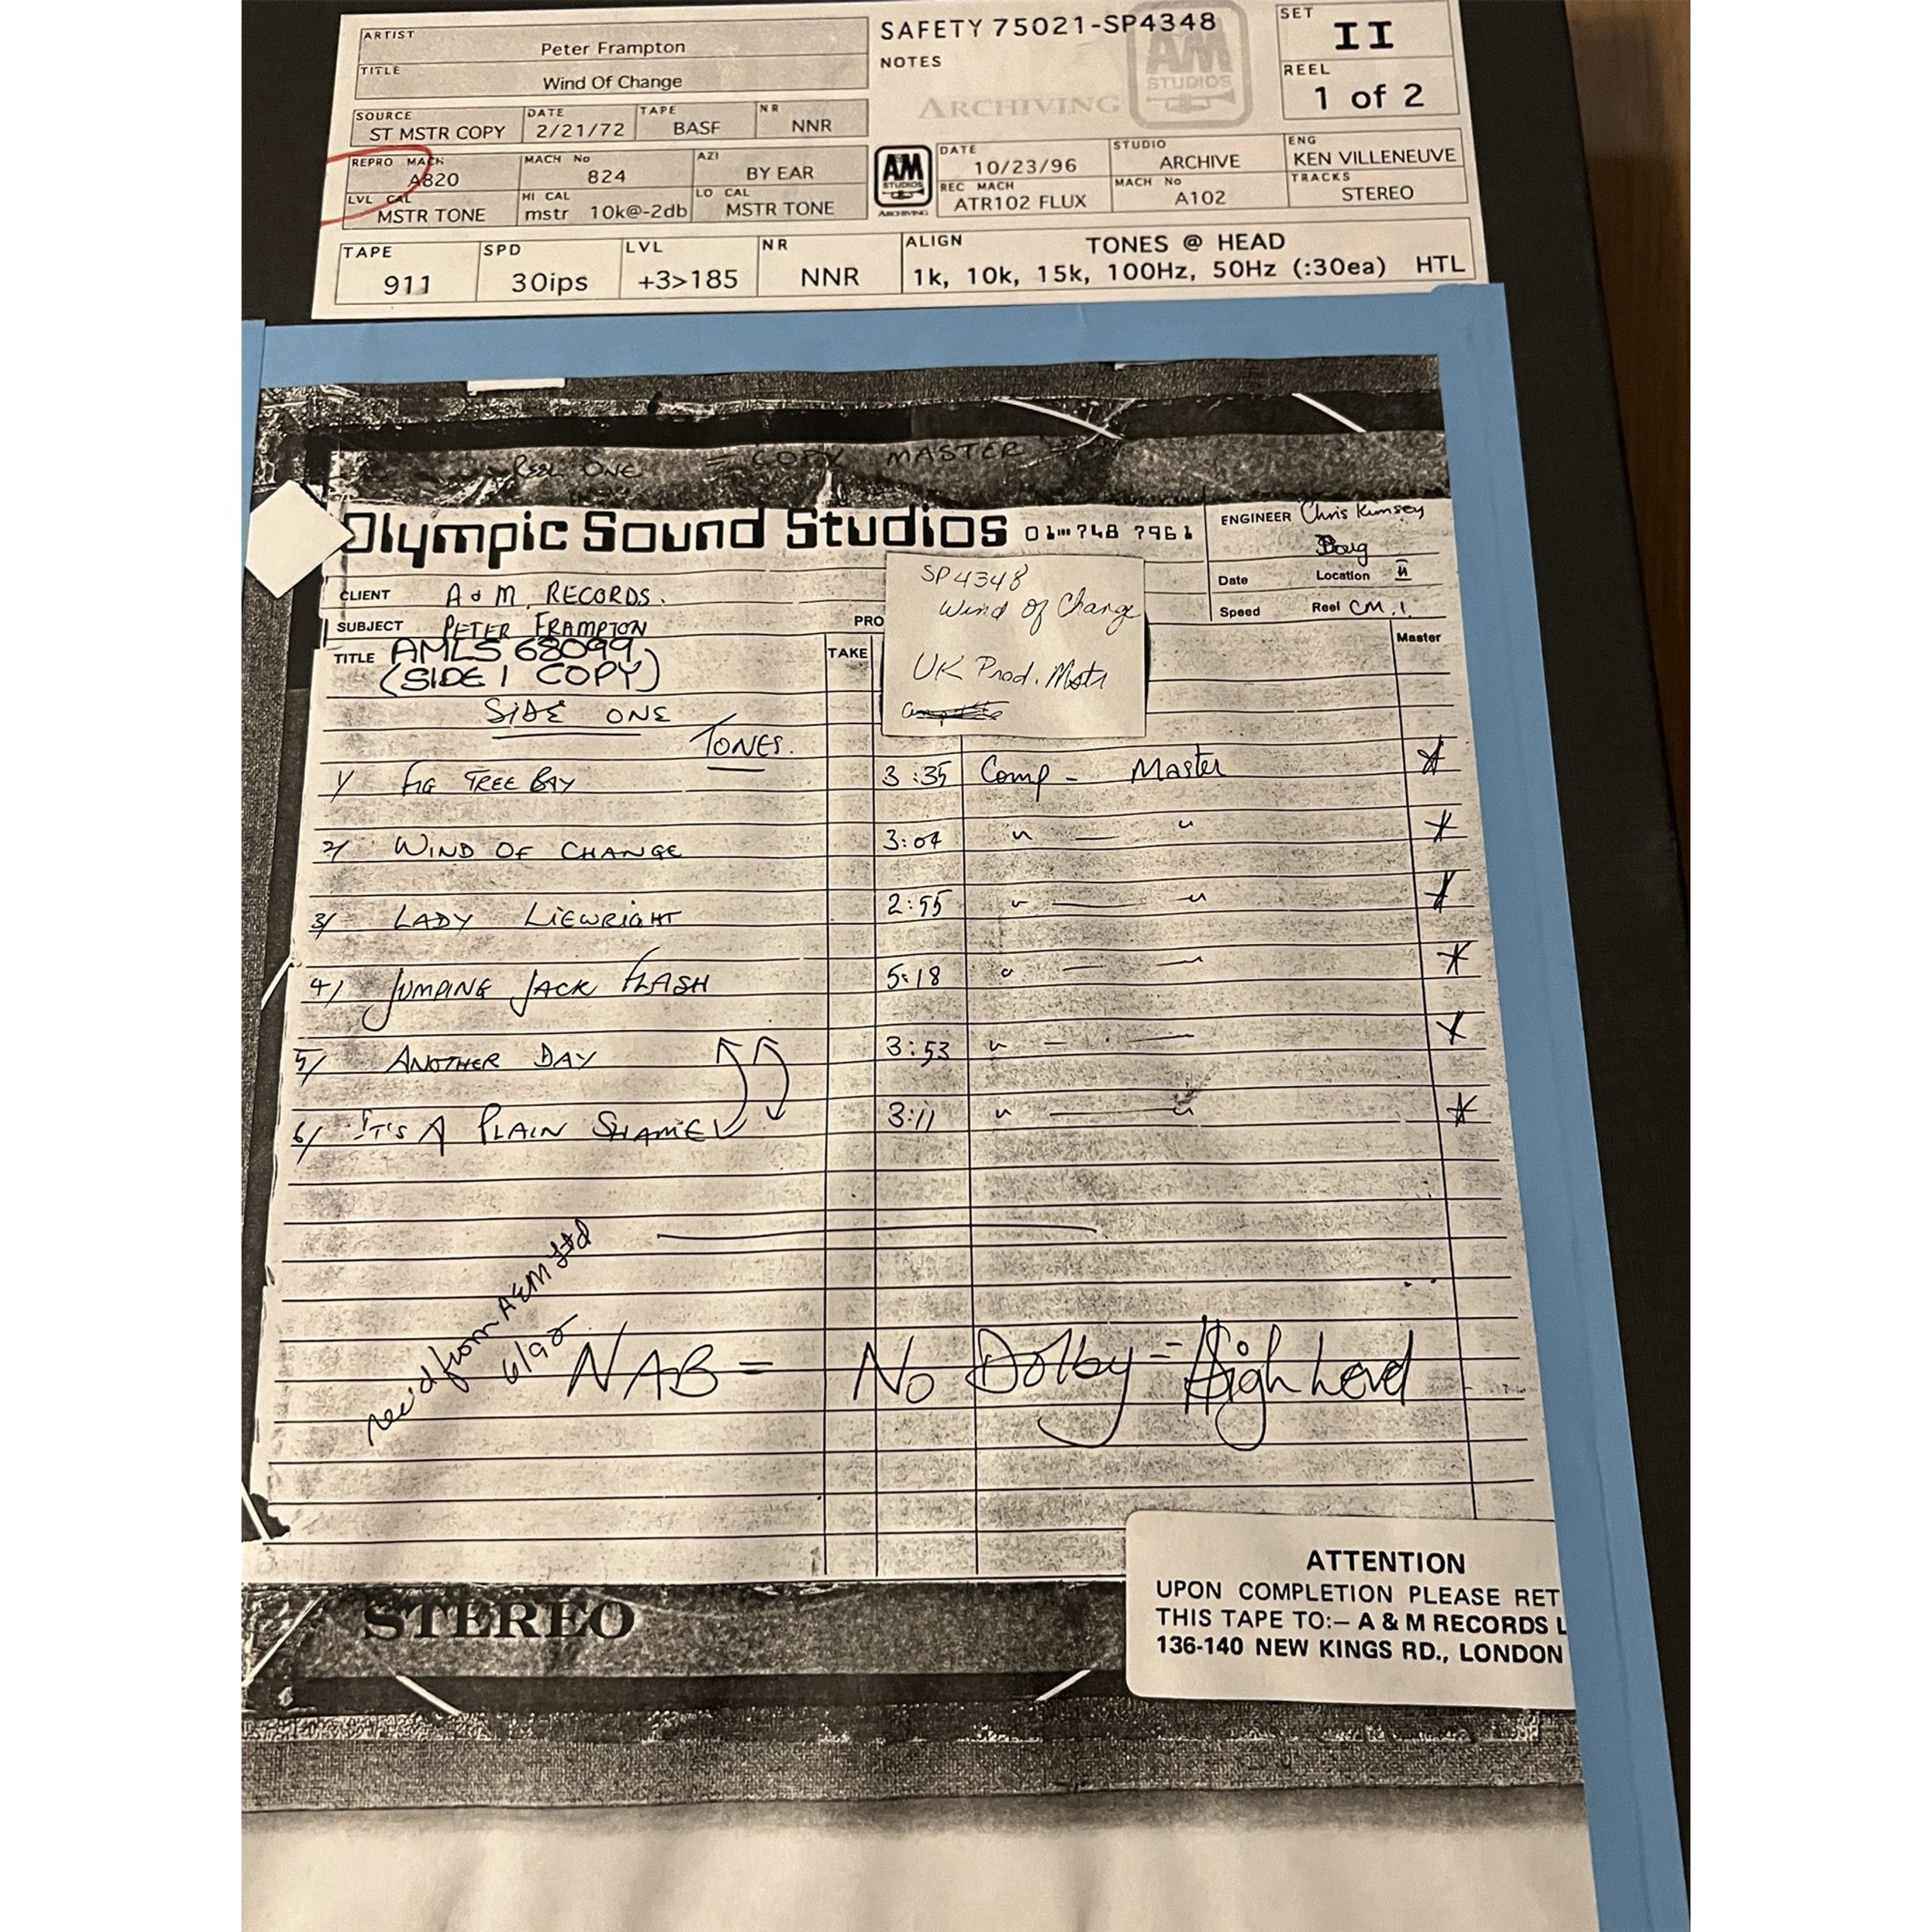 ARTIST
Peter Frampton
TITLE
Wind Of Change
SOURCE
ST MSTR COPY
DATE
2/21/72
TAPE
BASF
NR
NNR
REPRO MACH
A820
MACH No
824
AZI
BY EAR
LVL CAL
MSTR TONE
HI CAL
mstr 10k@-2db
LO CAL
MSTR TONE
SAFETY 75021-SP4348
NOTES
A&M
STUDIOS
ARCHIVING
SET
II
REEL
1 of 2
A&M
STUDIOS
ARCHIVING
DATE
10/23/96
STUDIO
ARCHIVE
ENG
KEN VILLENEUVE
REC MACH
ATR102 FLUX
MACH No
A102
TRACKS
STEREO
TAPE
911
SPD
30ips
LVL
+3>185
NR
NNR
ALIGN
TONES @ HEAD
1k, 10k, 15k, 100Hz, 50Hz (:30ea) HTL
REEL ONE = COPY MASTER
Olympic Sound Studios 01 748 7961
ENGINEER Chris Kimsey
Doug
Date Location
Speed Reel CM.1
CLIENT A & M RECORDS.
SUBJECT PETER FRAMPTON
PRO
SP4348
Wind Of Change
UK Prod. Mstr
TITLE AMLS 68099
(SIDE 1 COPY)
TAKE
Master
SIDE ONE
TONES.
1/ FIG TREE BAY 3:35 Comp - Master *
2/ WIND OF CHANGE 3:04 " — " *
3/ LADY LIEWRIGHT 2:55 " — " *
4/ JUMPING JACK FLASH 5:18 " — — *
5/ ANOTHER DAY 3:53 " — — *
6/ IT'S A PLAIN SHAME 3:11 " — " *
rec'd from A&M Ltd
6/92
NAB = No Dolby = High Level
STEREO
ATTENTION
UPON COMPLETION PLEASE RET
THIS TAPE TO:– A & M RECORDS L
136-140 NEW KINGS RD., LONDON